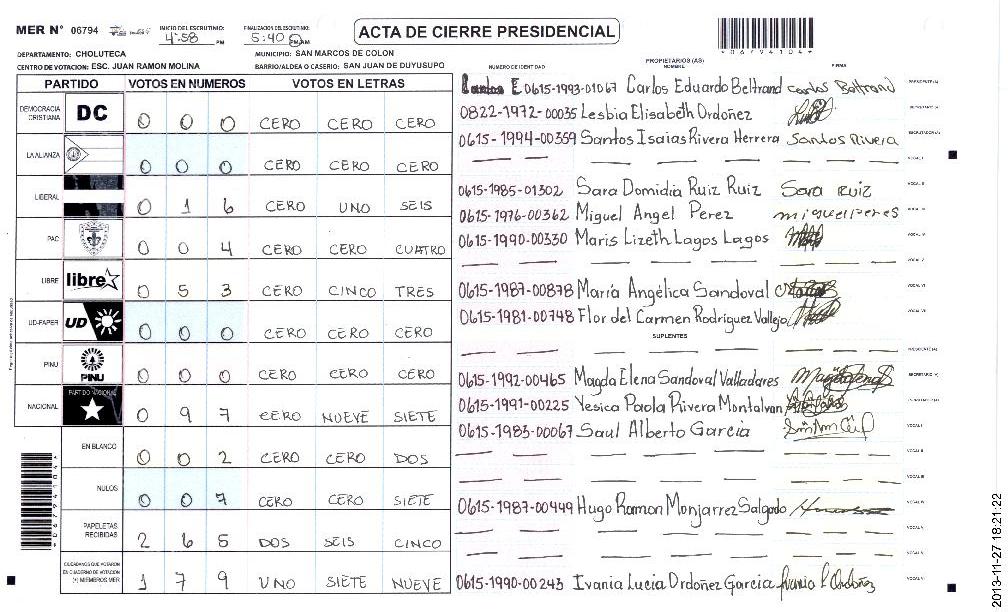 MER N° 06794
INICIO DEL ESCRUTINIO: 4:58 PM
FINALIZACION DEL ESCRUTINIO: 5:40 PM
ACTA DE CIERRE PRESIDENCIAL
DEPARTAMENTO: CHOLUTECA
MUNICIPIO: SAN MARCOS DE COLON
CENTRO DE VOTACION: ESC. JUAN RAMON MOLINA
BARRIO/ALDEA O CASERIO: SAN JUAN DE DUYUSUPO
PARTIDO VOTOS EN NUMEROS VOTOS EN LETRAS
DEMOCRACIA CRISTIANA DC 0 0 0 CERO CERO CERO
LA ALIANZA 0 0 0 CERO CERO CERO
LIBERAL 0 1 6 CERO UNO SEIS
PAC 0 0 4 CERO CERO CUATRO
LIBRE libre 0 5 3 CERO CINCO TRES
UD-FAPER UD 0 0 0 CERO CERO CERO
PINU PINU 0 0 0 CERO CERO CERO
NACIONAL PARTIDO NACIONAL 0 9 7 CERO NUEVE SIETE
EN BLANCO 0 0 2 CERO CERO DOS
NULOS 0 0 7 CERO CERO SIETE
PAPELETAS RECIBIDAS 2 6 5 DOS SEIS CINCO
CIUDADANOS QUE VOTARON EN CUADERNO DE VOTACION (+) MIEMBROS MER 1 7 9 UNO SIETE NUEVE
PROPIETARIOS (AS)
NUMERO DE IDENTIDAD NOMBRE FIRMA
0615-1993-01067 Carlos Eduardo Beltrand Carlos Beltrand PRESIDENTE (A)
0822-1972-00035 Lesbia Elisabeth Ordoñez SECRETARIO (A)
0615-1994-00359 Santos Isaias Rivera Herrera Santos Rivera ESCRUTADOR (A)
VOCAL I
0615-1985-01302 Sara Domidia Ruiz Ruiz Sara Ruiz VOCAL II
0615-1976-00362 Miguel Angel Perez miguel peres VOCAL III
0615-1990-00330 Maris Lizeth Lagos Lagos VOCAL IV
VOCAL V
0615-1987-00878 María Angélica Sandoval VOCAL VI
0615-1981-00748 Flor del Carmen Rodriguez Vallejo VOCAL VII
SUPLENTES
PRESIDENTE (A)
0615-1992-00465 Magda Elena Sandoval Valladares SECRETARIO (A)
0615-1991-00225 Yesica Paola Rivera Montalvan ESCRUTADOR (A)
0615-1983-00067 Saul Alberto Garcia VOCAL I
VOCAL II
VOCAL III
0615-1987-00449 Hugo Ramon Monjarrez Salgado VOCAL IV
VOCAL V
VOCAL VI
0615-1990-00243 Ivania Lucia Ordoñez Garcia Ivania L Ordoñez VOCAL VII
2013-11-27 18:21:22